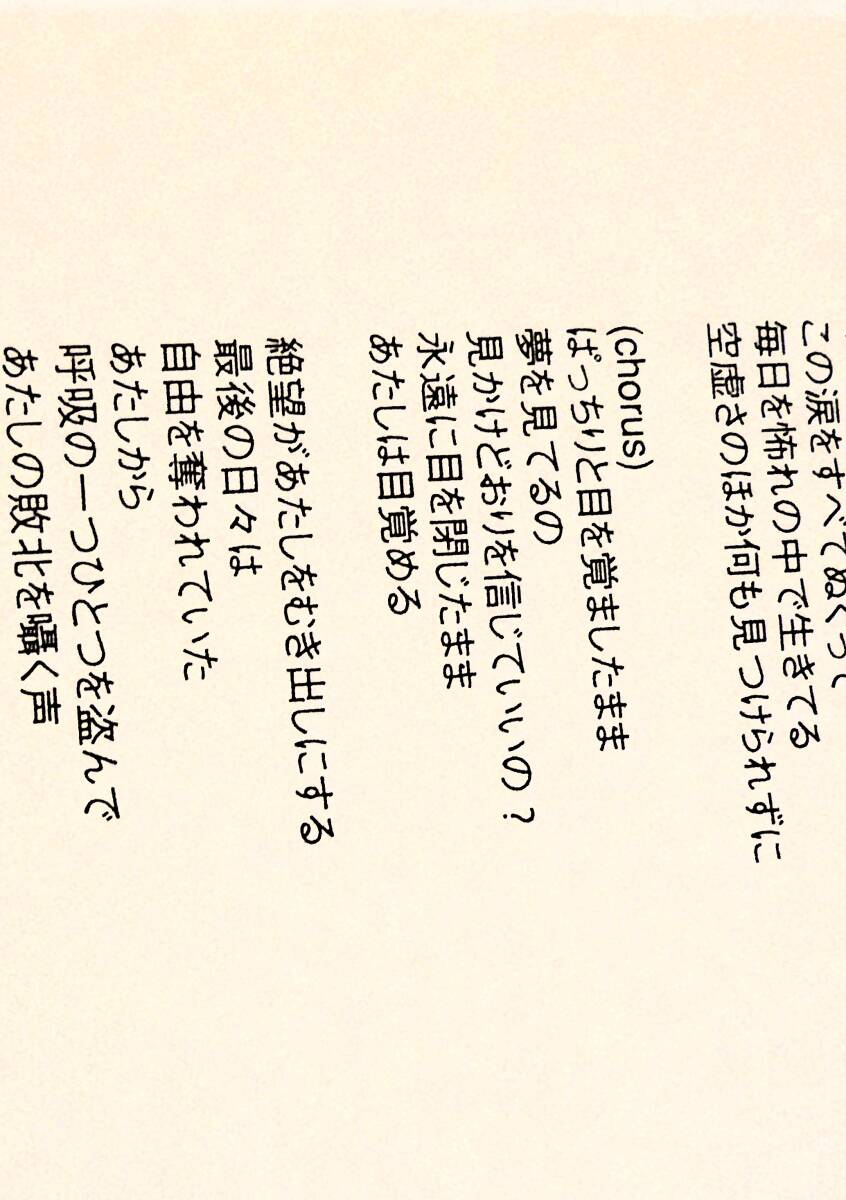 この涙をすべてぬぐって
毎日を怖れの中で生きてる
空虚さのほか何も見つけられずに
(chorus)
ぱっちりと目を覚ましたまま
夢を見てるの
見かけどおりを信じていいの？
永遠に目を閉じたまま
あたしは目覚める
絶望があたしをむき出しにする
最後の日々は
自由を奪われていた
あたしから
呼吸の一つひとつを盗んで
あたしの敗北を囁く声